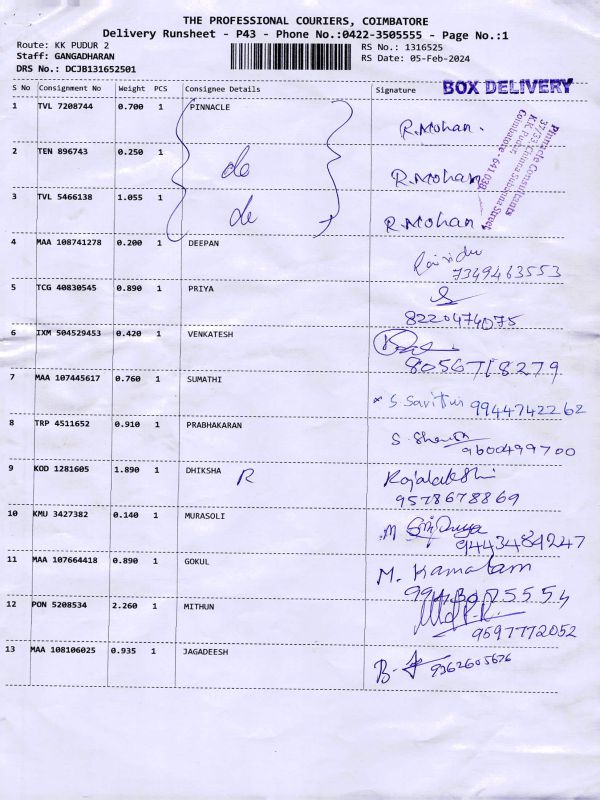 THE PROFESSIONAL COURIERS, COIMBATORE
Delivery Runsheet - P43 - Phone No.:0422-3505555 - Page No.:1
Route: KK PUDUR 2 RS No.: 1316525
Staff: GANGADHARAN RS Date: 05-Feb-2024
DRS No.: DCJB131652501
S No Consignment No Weight PCS Consignee Details Signature BOX DELIVERY
1 TVL 7208744 0.700 1 PINNACLE R.Mohan.
Pinnacle Consultants
37/33 Chinna Subanna Street
K.K Pudur,
Coimbatore - 641 038
2 TEN 896743 0.250 1 de R.Mohan
3 TVL 5466138 1.055 1 de R.Mohan
4 MAA 108741278 0.200 1 DEEPAN
7349463553
5 TCG 40830545 0.890 1 PRIYA
8220474075
6 IXM 504529453 0.420 1 VENKATESH
8056718279
7 MAA 107445617 0.760 1 SUMATHI 9944742262
8 TRP 4511652 0.910 1 PRABHAKARAN
9600499700
9 KOD 1281605 1.890 1 DHIKSHA R Rajalakshi
9578678869
10 KMU 3427382 0.140 1 MURASOLI
9443484247
11 MAA 107664418 0.890 1 GOKUL M. Kamalam
12 PON 5208534 2.260 1 MITHUN
9597772052
13 MAA 108106025 0.935 1 JAGADEESH 9362605676